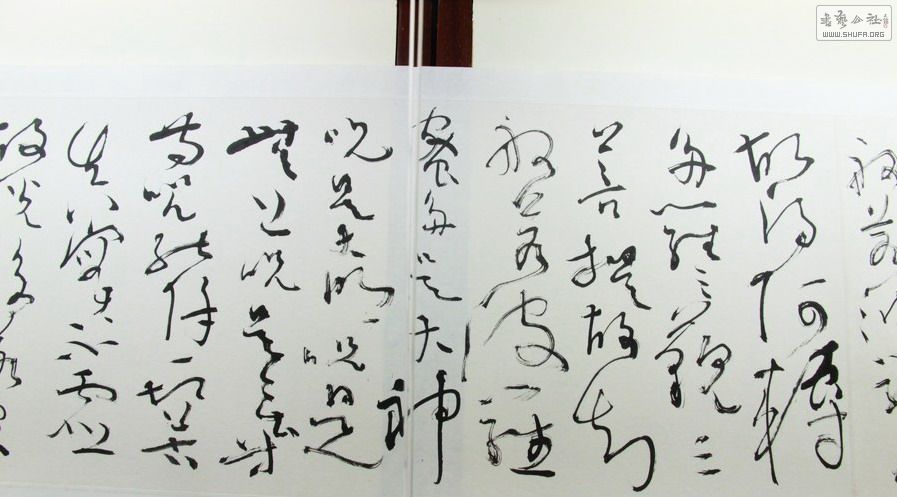 般若波羅
故得阿耨
多羅三藐三
菩提故知
般若波羅
蜜多是大神
呪是大明呪是
無上呪是無等
等呪能除一切苦
真實不虛
故說般若
書藝公社
WWW.SHUFA.ORG